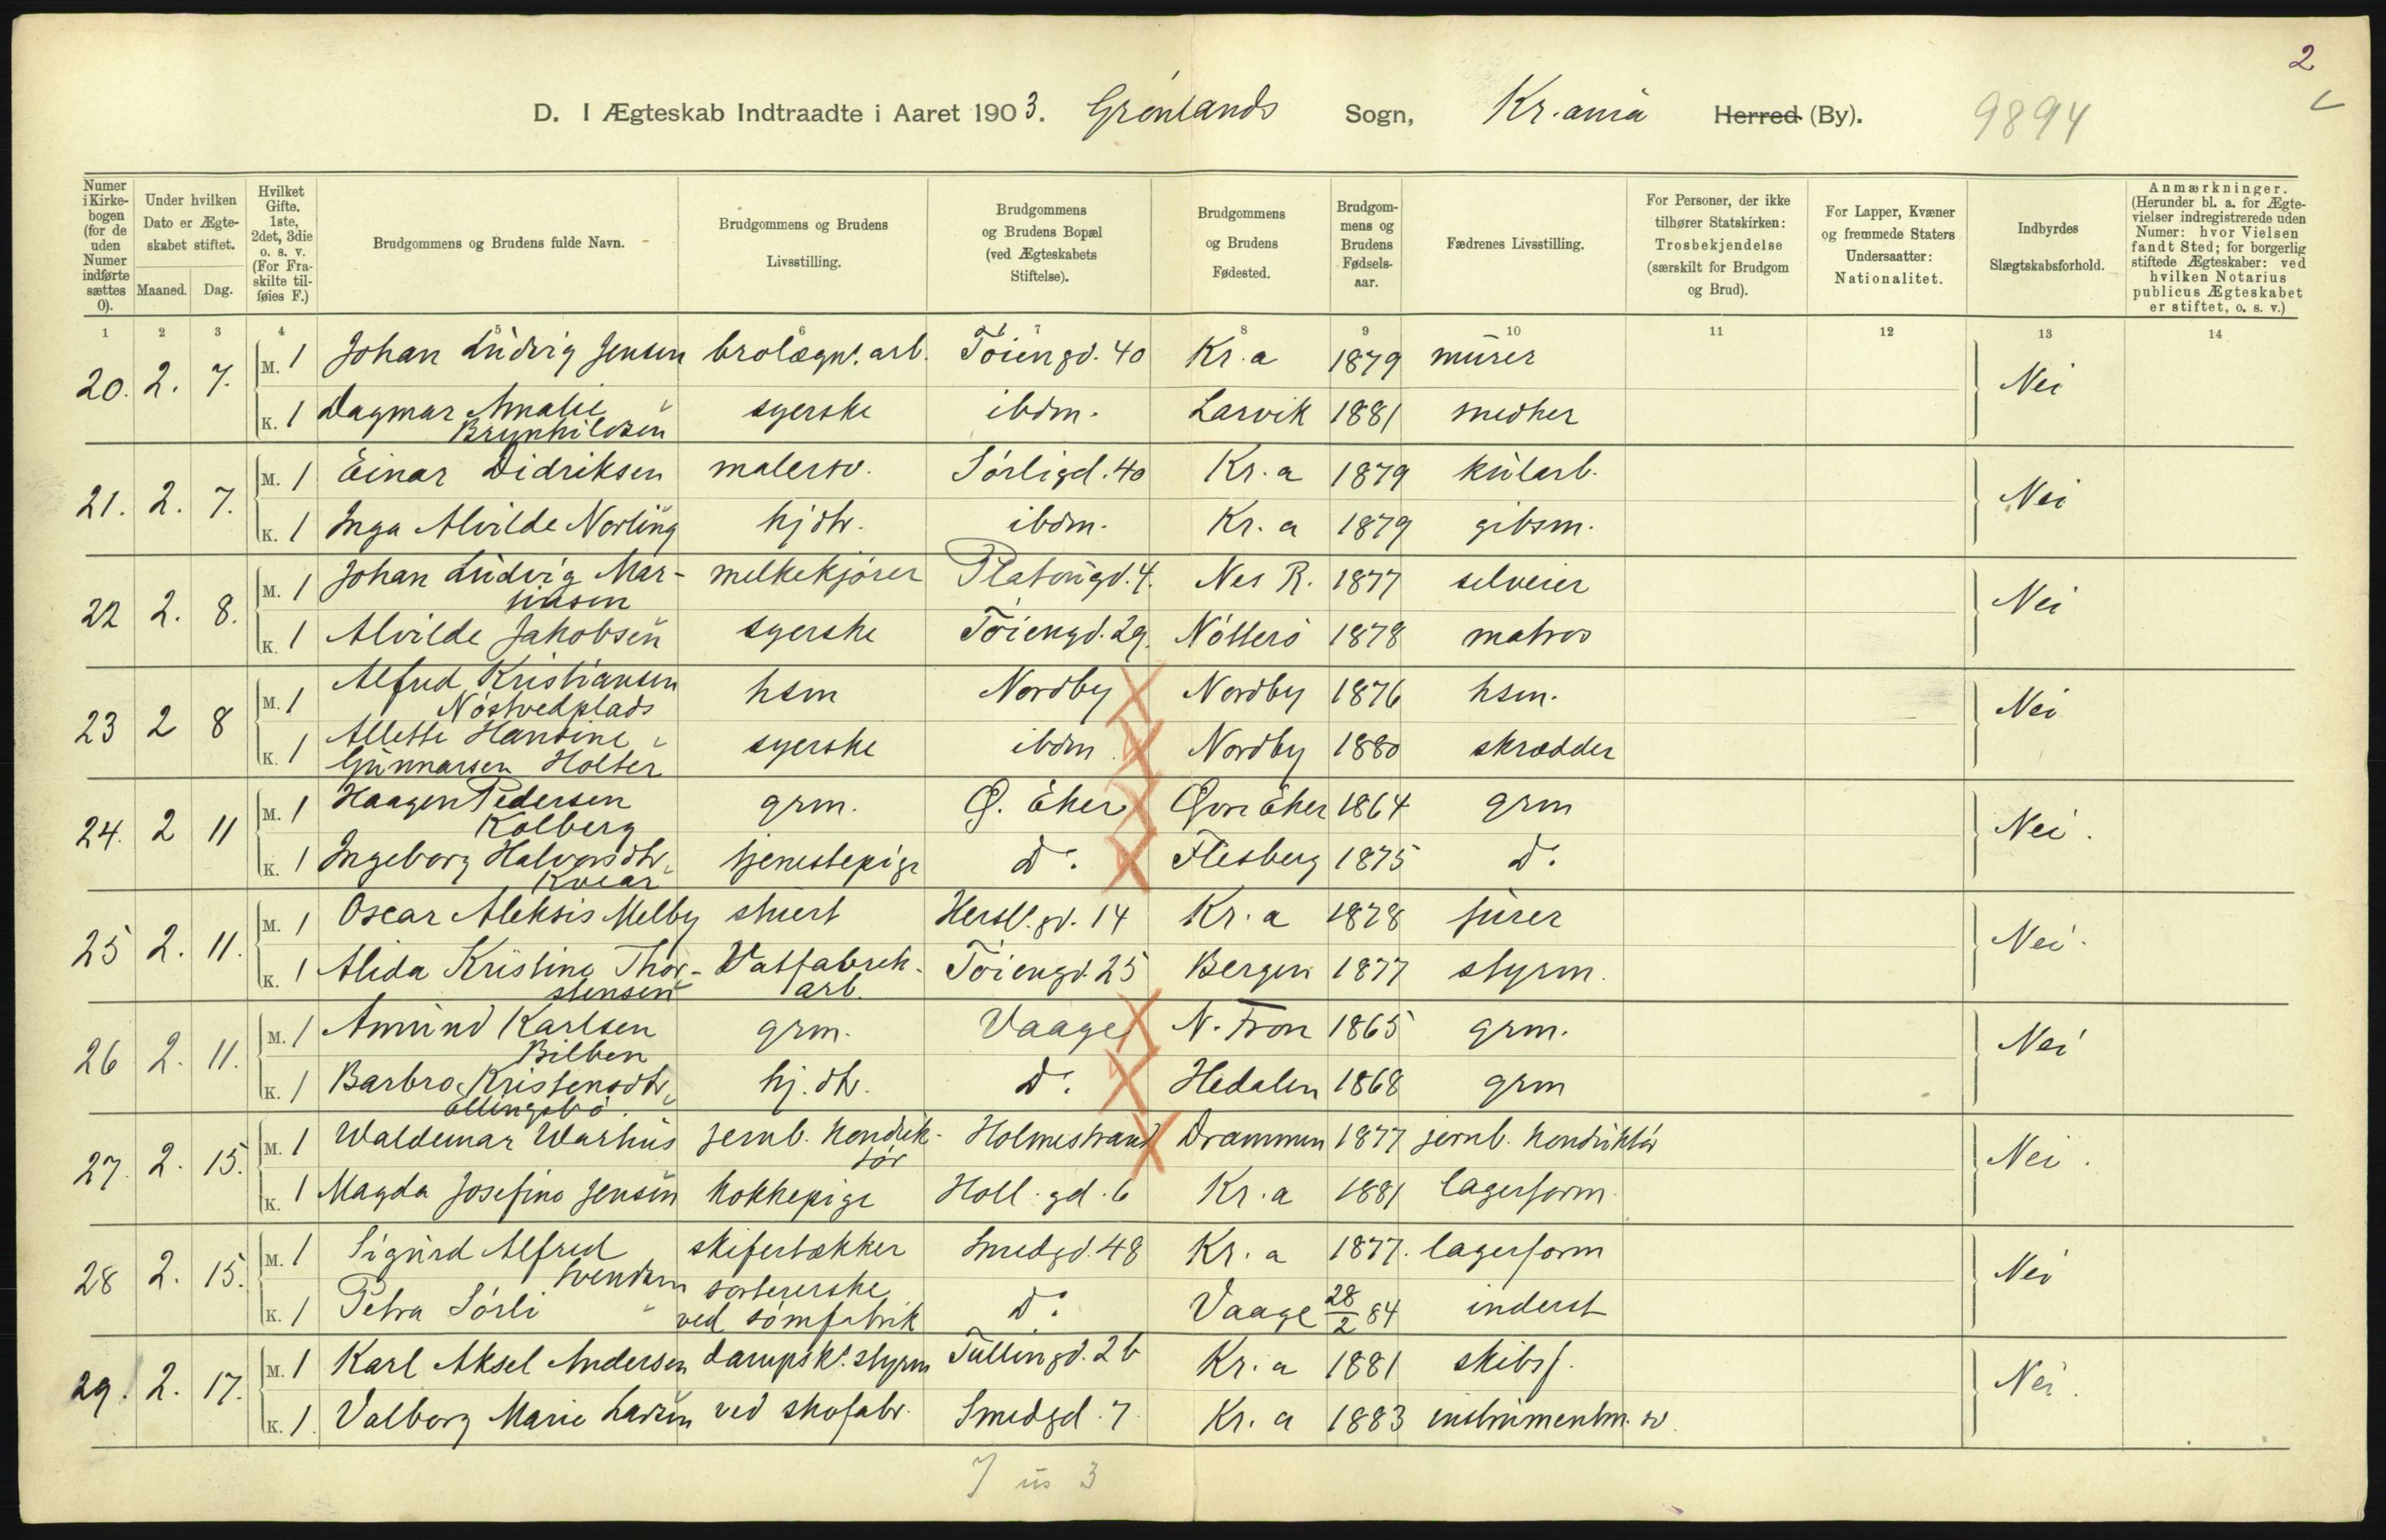 2
D. I Ægteskab Indtraadte i Aaret 1903. Grønlands Sogn, Kr.ania Herred (By). 9894
Numer i Kirkebogen (for de uden Numer indførte sættes 0).
Under hvilken Dato er Ægteskabet stiftet.
Maaned. Dag.
Hvilket Gifte. 1ste, 2det, 3die o. s. v. (For Fraskilte tilføies F.)
Brudgommens og Brudens fulde Navn.
Brudgommens og Brudens Livsstilling.
Brudgommens og Brudens Bopæl (ved Ægteskabets Stiftelse).
Brudgommens og Brudens Fødested.
Brudgommens og Brudens Fødselsaar.
Fædrenes Livsstilling.
For Personer, der ikke tilhører Statskirken: Trosbekjendelse (særskilt for Brudgom og Brud).
For Lapper, Kvæner og fremmede Staters Undersaatter: Nationalitet.
Indbyrdes Slægtskabsforhold.
Anmærkninger. (Herunder bl. a. for Ægtevielser indregistrerede uden Numer: hvor Vielsen fandt Sted; for borgerlig stiftede Ægteskaber: ved hvilken Notarius publicus Ægteskabet er stiftet, o. s. v.)
1 2 3 4 5 6 7 8 9 10 11 12 13 14
20. 2. 7. M. 1 Johan Ludvig Jensen brolægn. arb. Tøiengd. 40 Kr.a 1879 murer Nei
K. 1 Dagmar Amalie Brynhildsen syerske ibdm. Larvik 1881 smedher
21. 2. 7. M. 1 Einar Didriksen malersv. Sørligd. 40 Kr.a 1879 kularb. Nei
K. 1 Inga Alvilde Norling hjdtr. ibdm. Kr.a 1879 gibsm.
22 2. 8. M. 1 Johan Ludvig Martinsen melkekjører Platougd. 4. Nes R. 1877 selveier Nei
K. 1 Alvilde Jakobsen syerske Tøiengd. 29. Nøtterø 1878 matros
23 2 8 M. 1 Alfred Kristiansen Nøstvedplads hsm Nordby Nordby 1876 hsm. Nei
K. 1 Allette Hansine Gunnarsen Holter syerske ibdm Nordby 1880 skrædder
24. 2 11 M. 1 Haagen Pedersen Kolberg grm. Ø. Eker Øvre Eker 1864 grm Nei.
K. 1 Ingeborg Halvorsdtr. tjenestepige Do. Flesberg 1875 Do.
25 2. 11. M. 1 Oscar Aleksis Melby stuert Hersl. gd. 14 Kr.a 1878 furer Nei.
K. 1 Alida Kristine Thorstensen Vatfabrik-arb. Tøiengd. 25 Bergen 1877 styrm.
26 2. 11. M. 1 Amund Karlsen Bilben grm. Vaage N. Fron 1865 grm. Nei
K. 1 Barbro Kristensdtr. Ellingsbø. hj. dtr. Do. Hedalen 1868 grm
27. 2. 15. M. 1 Waldemar Warhus jernb. konduktør Holmestrand Drammen 1877 jernb. konduktør Nei.
K. 1 Magda Josefine Jensen kokkepige Holl. gd. 6 Kr.a 1881 lagerform.
28 2. 15. M. 1 Sigurd Alfred Svendsen skifertækker Smedgd. 48 Kr.a 1877. lagerform Nei
K. 1 Petra Sørli sortererske ved sømfabrik Do. Vaage 28/2 84 inderst
29. 2. 17. M. 1 Karl Aksel Andersen dampsk. styrm Tullingd. 2b Kr.a 1881 skibsf. Nei.
K. 1. Valborg Marie Larsen ved skofabr. Smedgd. 7. Kr.a 1883 instrumentm. sv.